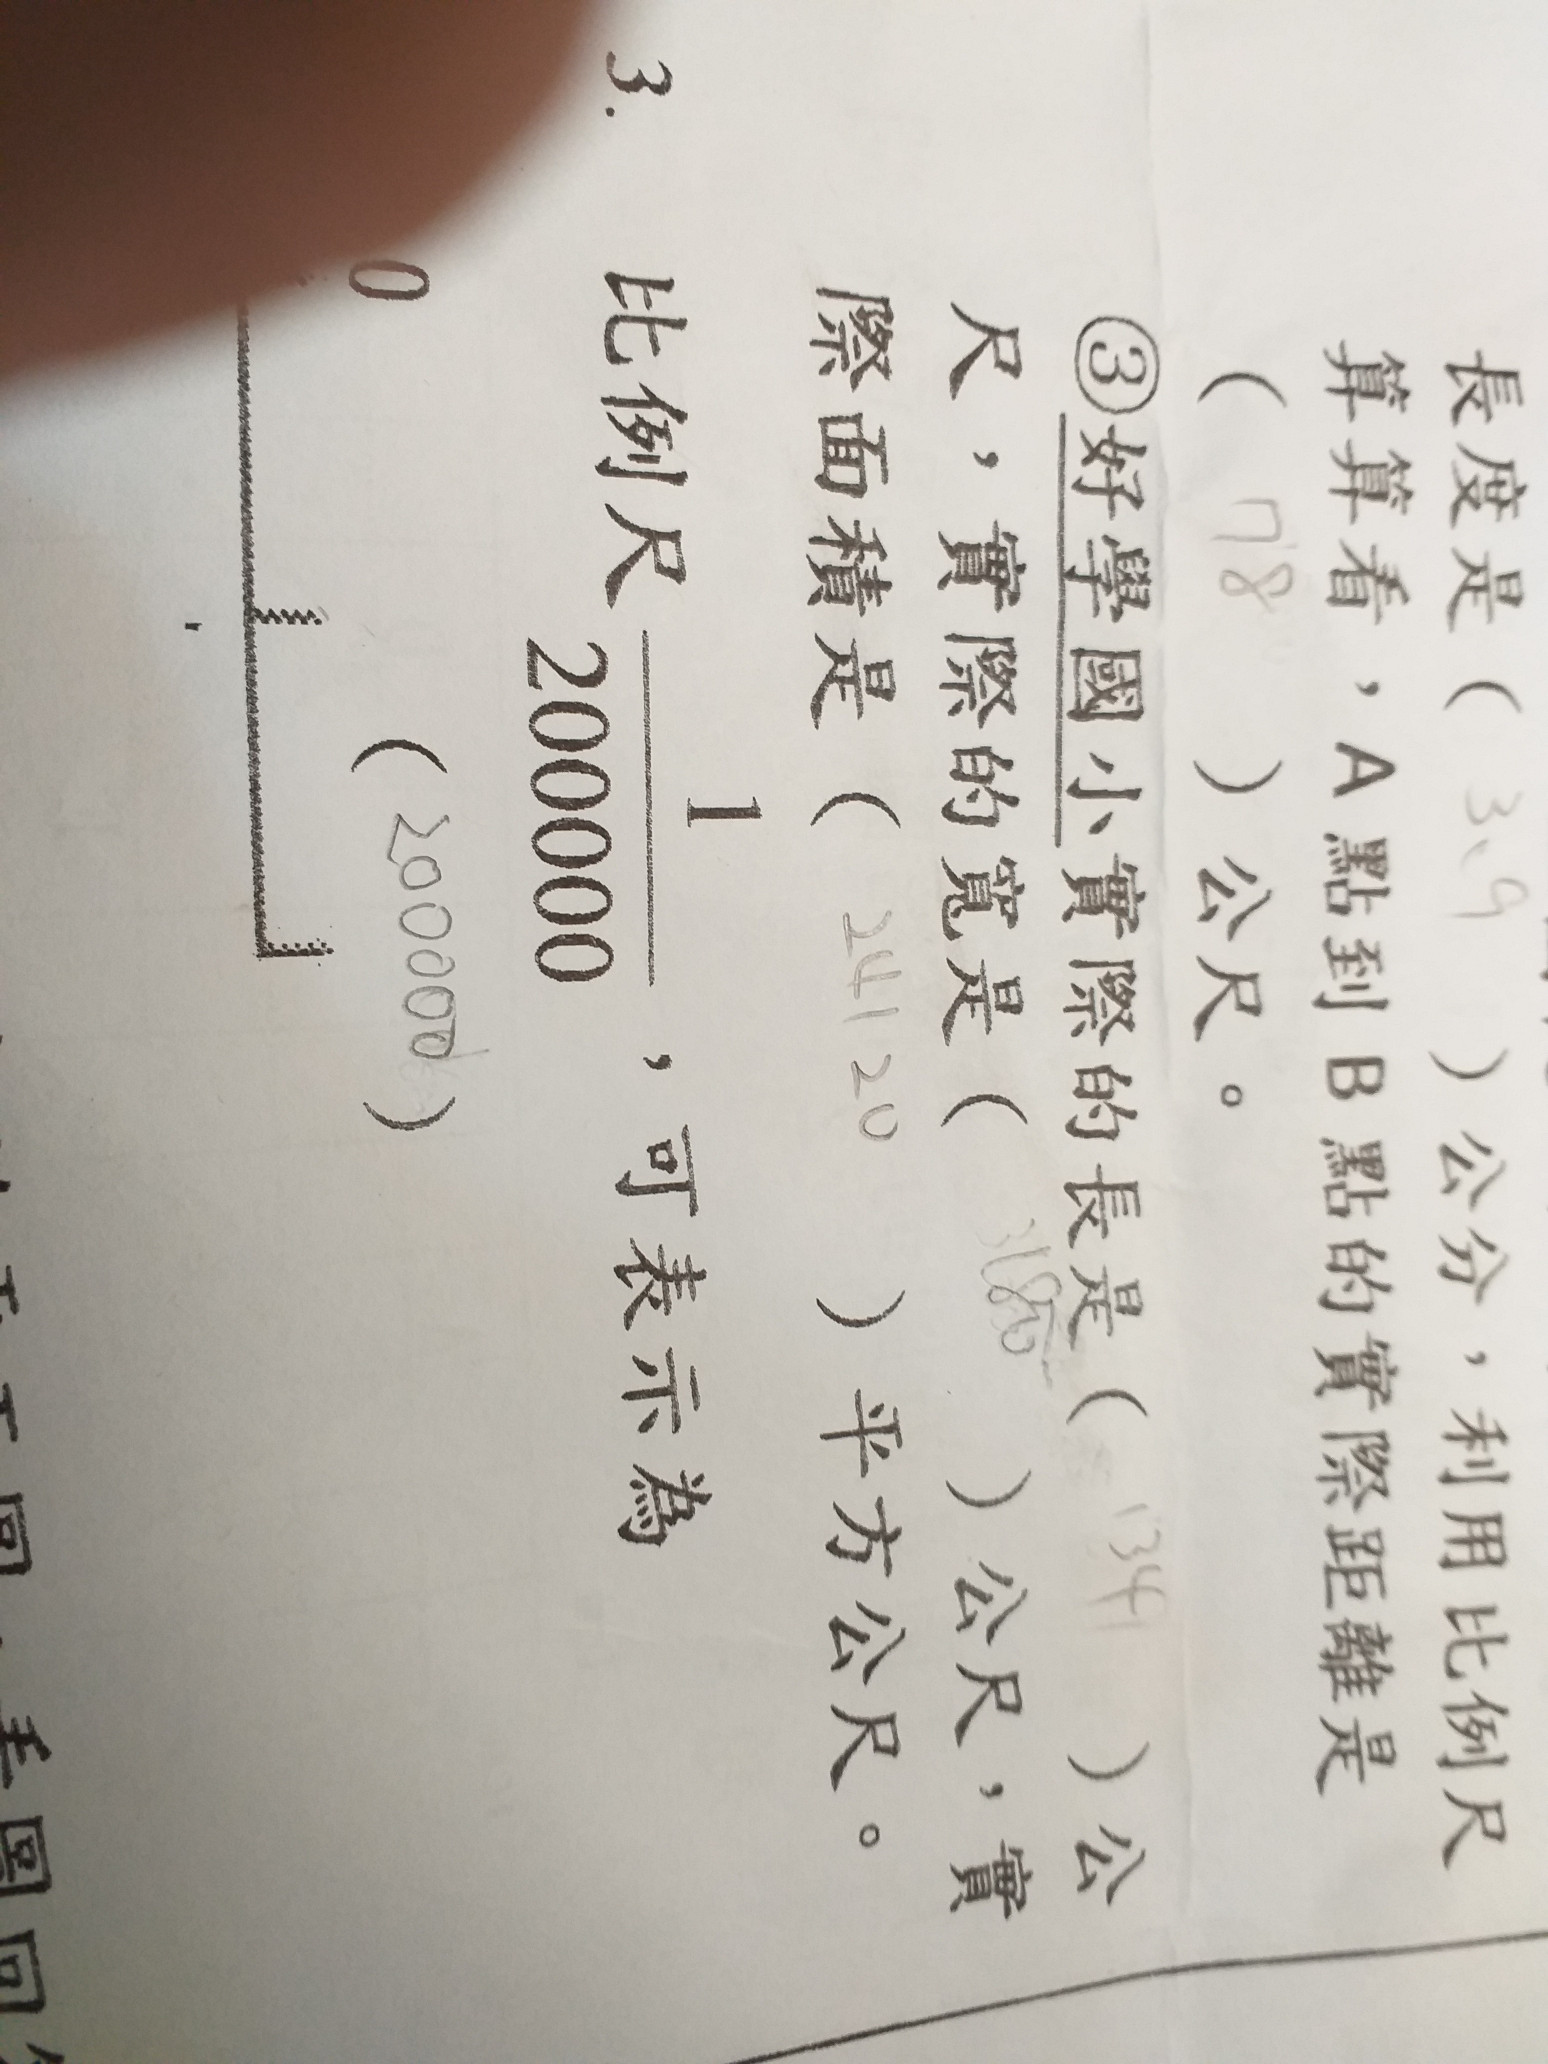 長度是（3.9）公分，利用比例尺
算算看，A點到B點的實際距離是
（78）公尺。
③好學國小實際的長是（134）公
尺，實際的寬是（180）公尺，實
際面積是（24120）平方公尺。
3. 比例尺 1/200000，可表示為
0 （200000）